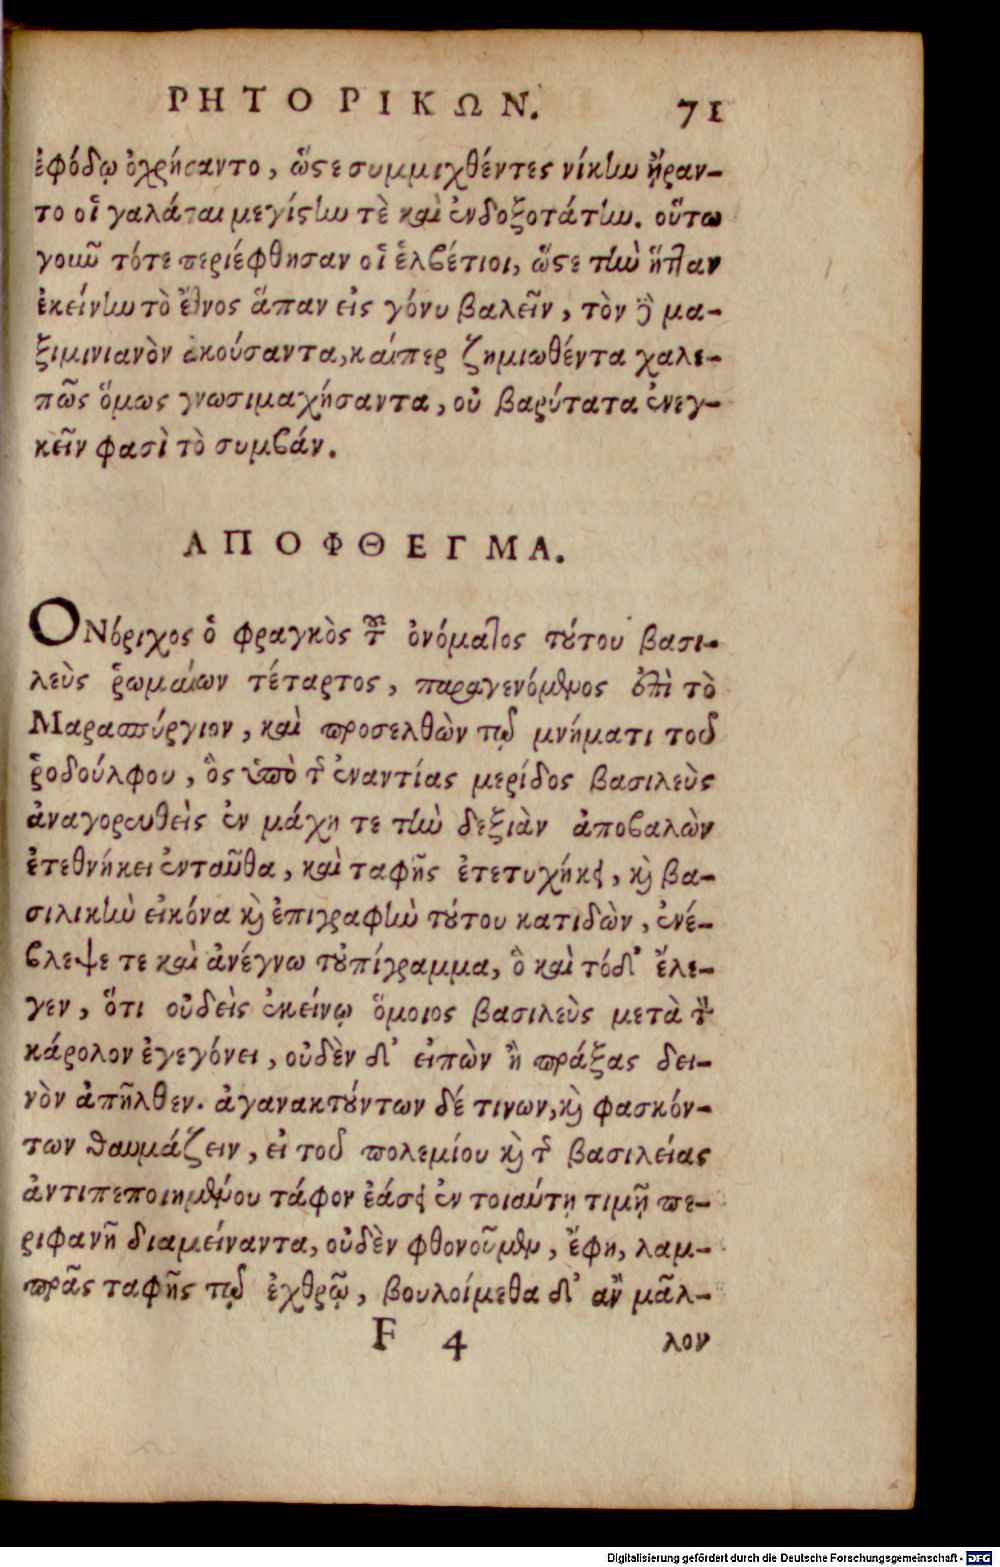 ΡΗΤΟΡΙΚΩΝ. 71
ἐφόδῳ ἐχρήσαντο, ὥστε συμμιχθέντες νίκην ἤραν-
το οἱ γαλάται μεγίστην τὲ καὶ ἐνδοξοτάτην. οὕτω
γοιοῦν τότε περιέφθησαν οἱ ἑλβέτιοι, ὥστε τὴν ἥτταν
ἐκείνην τὸ ἔθνος ἅπαν εἰς γόνυ βαλεῖν, τὸν δὲ μα-
ξιμινιανὸν ἀκούσαντα, καίπερ ζημιωθέντα χαλε-
πῶς ὅμως γνωσιμαχήσαντα, οὐ βαρύτατα ἐνεγ-
κεῖν φασὶ τὸ συμβάν.
ΑΠΟΦΘΕΓΜΑ.
ΟΝόριχος ὁ φραγκὸς τοῦ ὀνόματος τούτου βασι-
λεὺς ῥωμαίων τέταρτος, παραγενόμενος ἐπὶ τὸ
Μαρασπύργιον, καὶ προσελθὼν τῷ μνήματι τοῦ
ῥοδούλφου, ὃς ὑπὸ τῆς ἐναντίας μερίδος βασιλεὺς
ἀναγορευθεὶς ἐν μάχῃ τε τὴν δεξιὰν ἀποβαλὼν
ἐτεθνήκει ἐνταῦθα, καὶ ταφῆς ἐτετυχήκει, καὶ βα-
σιλικὴν εἰκόνα καὶ ἐπιγραφὴν τούτου κατιδὼν, ἐνέ-
βλεψε τε καὶ ἀνέγνω τοὐπίγραμμα, ὃ καὶ τόδ' ἔλε-
γεν, ὅτι οὐδεὶς ἐκείνῳ ὅμοιος βασιλεὺς μετὰ τὸν
κάρολον ἐγεγόνει, οὐδὲν δ' εἰπὼν ἢ πράξας δει-
νὸν ἀπῆλθεν. ἀγανακτούντων δέ τινων, καὶ φασκόν-
των θαυμάζειν, εἰ τοῦ πολεμίου καὶ τῆς βασιλείας
ἀντιπεποιημένου τάφον ἐάσει ἐν τοιαύτῃ τιμῇ πε-
ριφανῆ διαμείναντα, οὐδὲν φθονοῦμεν, ἔφη, λαμ-
πρᾶς ταφῆς τῷ ἐχθρῷ, βουλοίμεθα δ' ἂν μᾶλ-
F 4 λον
Digitalisierung gefördert durch die Deutsche Forschungsgemeinschaft - DFG